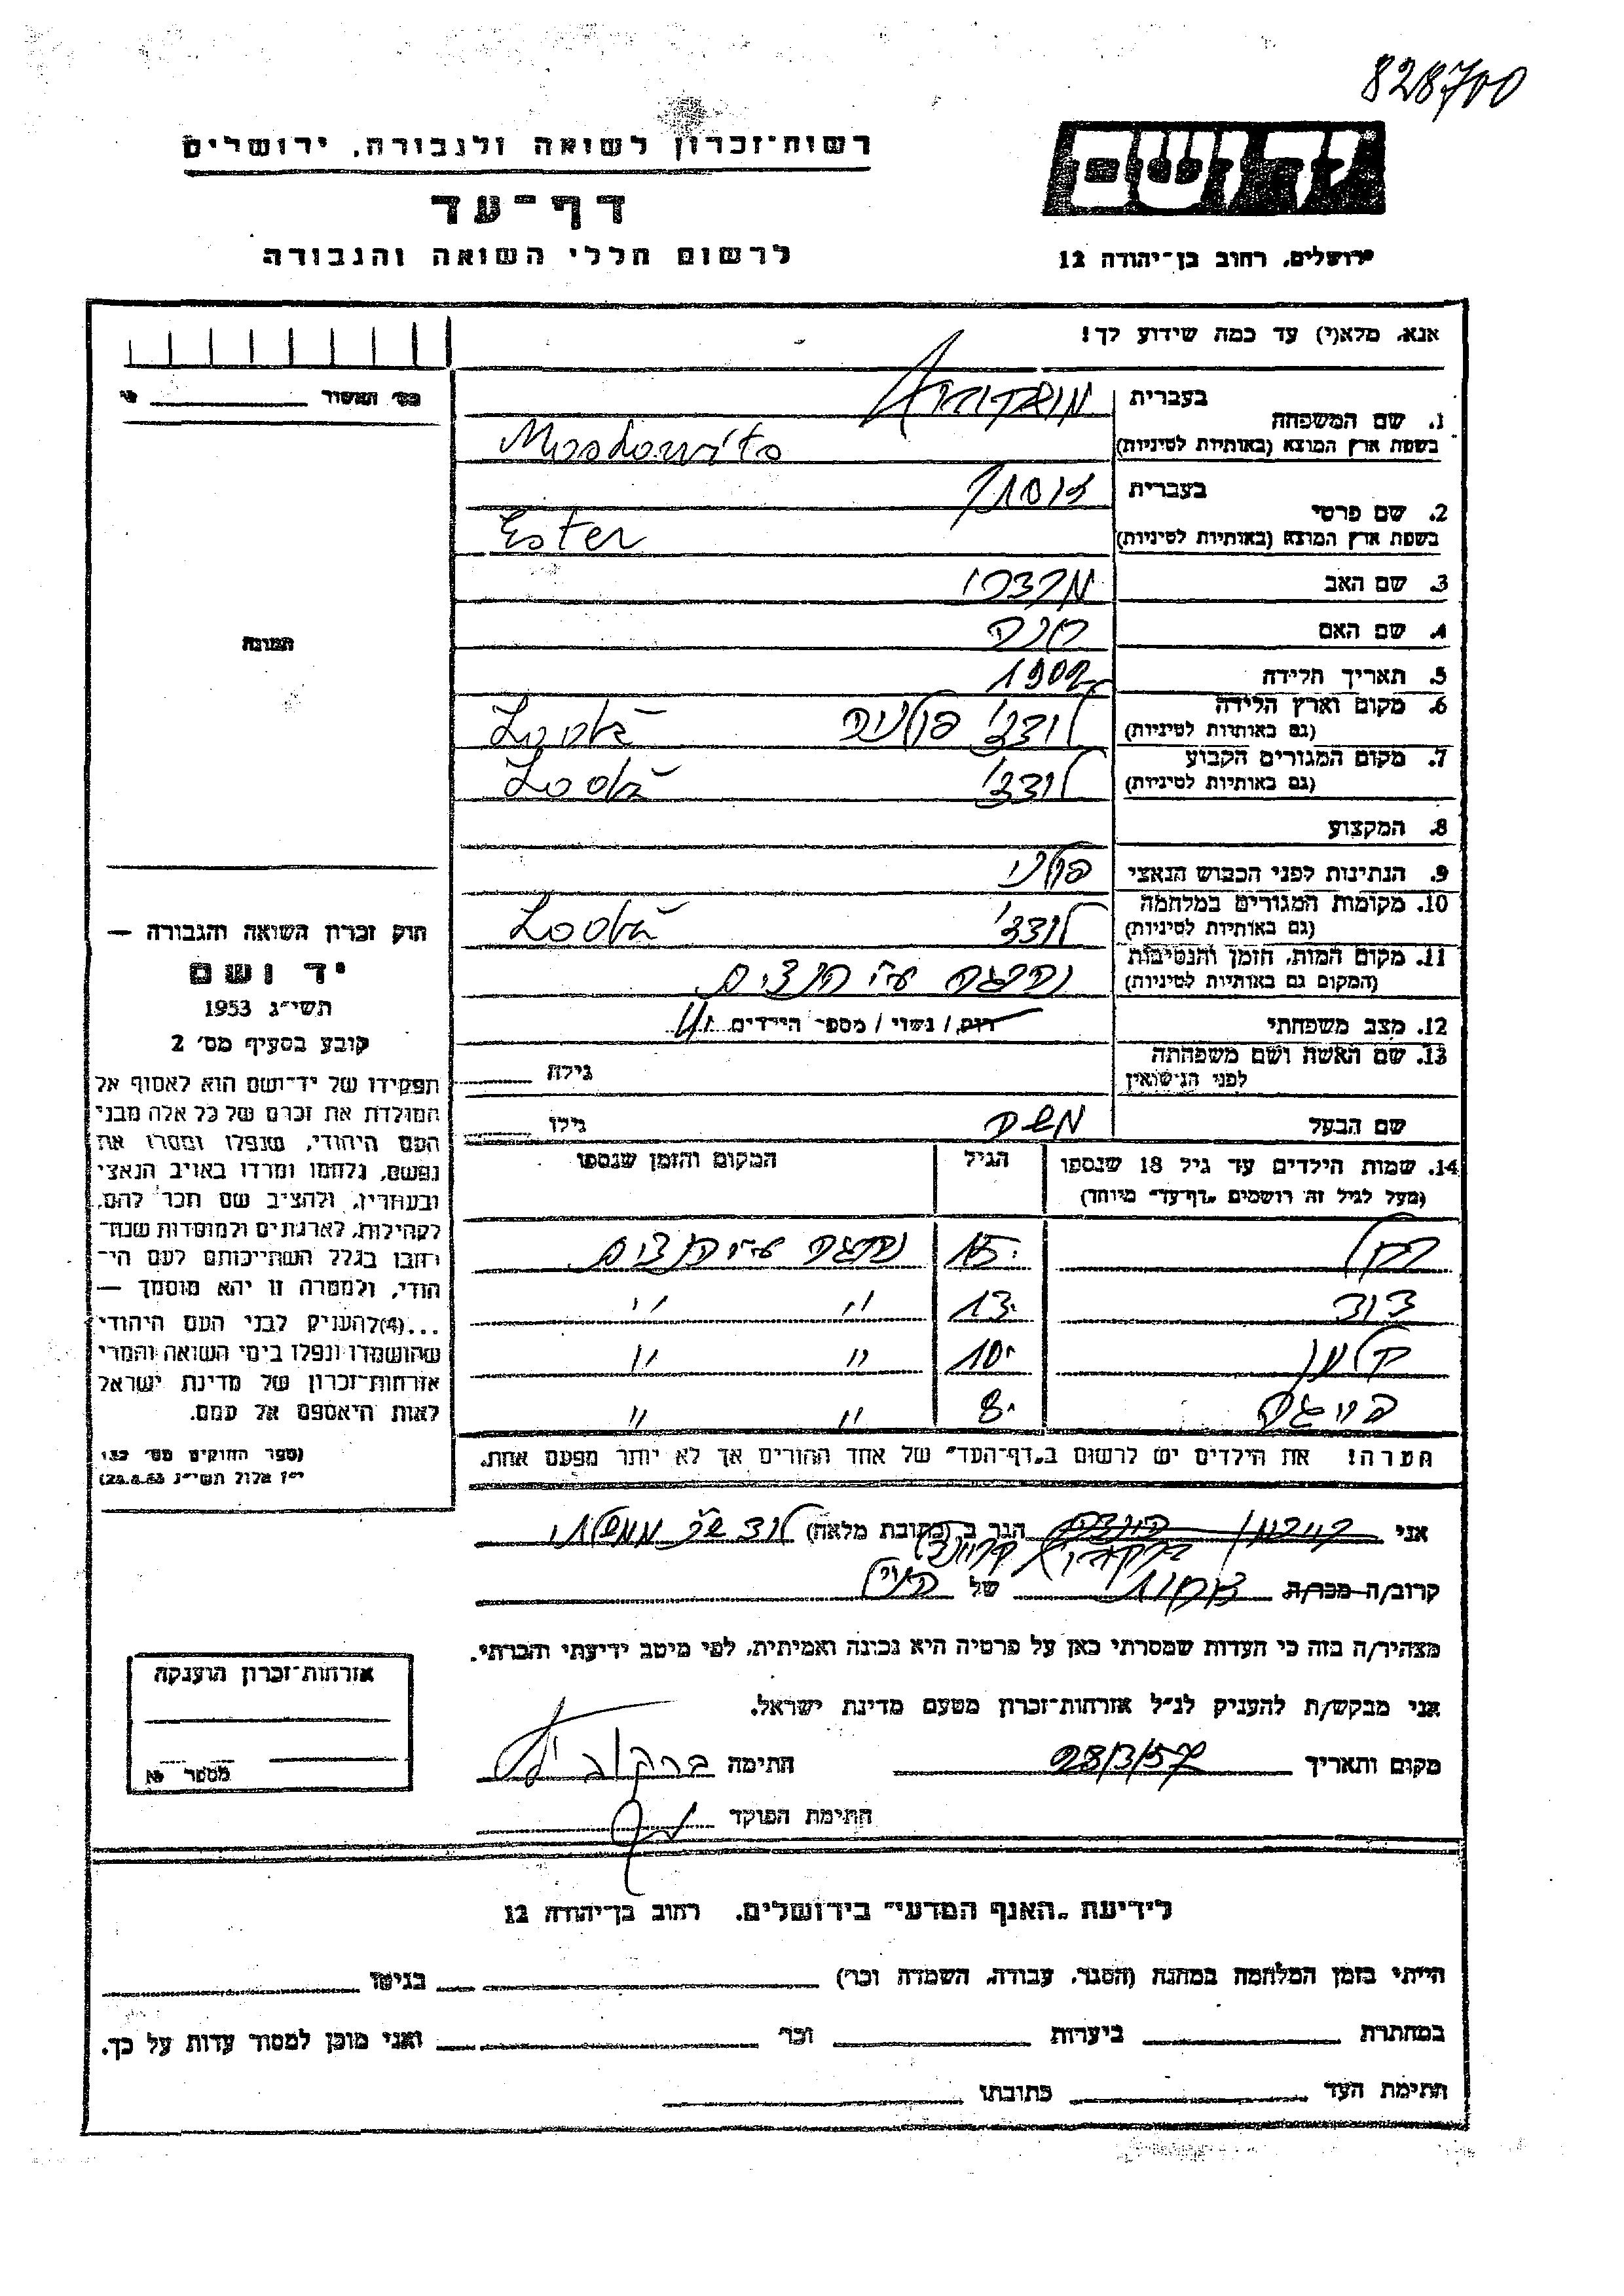 828700
יד ושם
רשות-זכרון לשואה ולגבורה, ירושלים
דף-עד
לרשום חללי השואה והגבורה
ירושלים, רחוב בן-יהודה 12
אנא, מלא(י) עד כמה שידוע לך!
מס' האשור
1. שם המשפחה
בעברית
בשפת ארץ המוצא (באותיות לטיניות) Moskowits
2. שם פרטי
בעברית אסתר
בשפת ארץ המוצא (באותיות לטיניות) Ester
3. שם האב מרדכי
4. שם האם
5. תאריך הלידה 1902
6. מקום וארץ הלידה לודז' פולניה
(גם באותיות לטיניות) Lodź
7. מקום המגורים הקבוע לודז'
(גם באותיות לטיניות) Lodź
8. המקצוע
9. הנתינות לפני הכבוש הנאצי פולני
10. מקומות המגורים במלחמה לודז'
(גם באותיות לטיניות) Lodź
11. מקום המות, הזמן והנסיבות נהרגה ע"י הנצים
(המקום גם באותיות לטיניות)
12. מצב משפחתי רווק / נשוי / מספר הילדים 4
13. שם האשה ושם משפחתה
לפני הנישואין
גילה
שם הבעל משה גילו
14. שמות הילדים עד גיל 18 שנספו הגיל המקום והזמן שנספו
(מעל לגיל זה רושמים "דף-עד" מיוחד)
רחל 15 נהרגה ע"י הנצים
דוד 13 " "
10 " "
8 " "
הערה! את הילדים יש לרשום ב"דף-העד" של אחד ההורים אך לא יותר מפעם אחת.
תמונה
חוק זכרון השואה והגבורה —
יד ושם
תשי"ג 1953
קובע בסעיף מס' 2
תפקידו של יד-ושם הוא לאסוף אל
המולדת את זכרם של כל אלה מבני
העם היהודי, שנפלו ומסרו את
נפשם, נלחמו ומרדו באויב הנאצי
ובעוזריו, ולהציב שם וזכר להם,
לקהילות, לארגונים ולמוסדות שנח-
רבו בגלל השתייכותם לעם הי-
הודי, ולמטרה זו יהא מוסמך —
...(4) להעניק לבני העם היהודי
שהושמדו ונפלו בימי השואה והמרי
אזרחות-זכרון של מדינת ישראל
לאות היאספם אל עמם.
(ספר החוקים מס' 132
י"ז אלול תשי"ג 28.8.53)
אני
הגר ב (כתובת מלאה)
קרוב/ה מכר/ה של
מצהיר/ה בזה כי העדות שמסרתי כאן על פרטיה היא נכונה ואמיתית, לפי מיטב ידיעתי והכרתי.
אני מבקש/ת להעניק לנ"ל אזרחות-זכרון מטעם מדינת ישראל.
מקום ותאריך 28/3/57 חתימה
חתימת הפוקד
אזרחות-זכרון הוענקה
מספר
לידיעת "האגף המדעי" בירושלים, רחוב בן-יהודה 12
הייתי בזמן המלחמה במחנה (הסגר, עבודה, השמדה וכר') בגיטו
במחתרת ביערות וכר' ואני מוכן למסור עדות על כך.
חתימת העד כתובתו